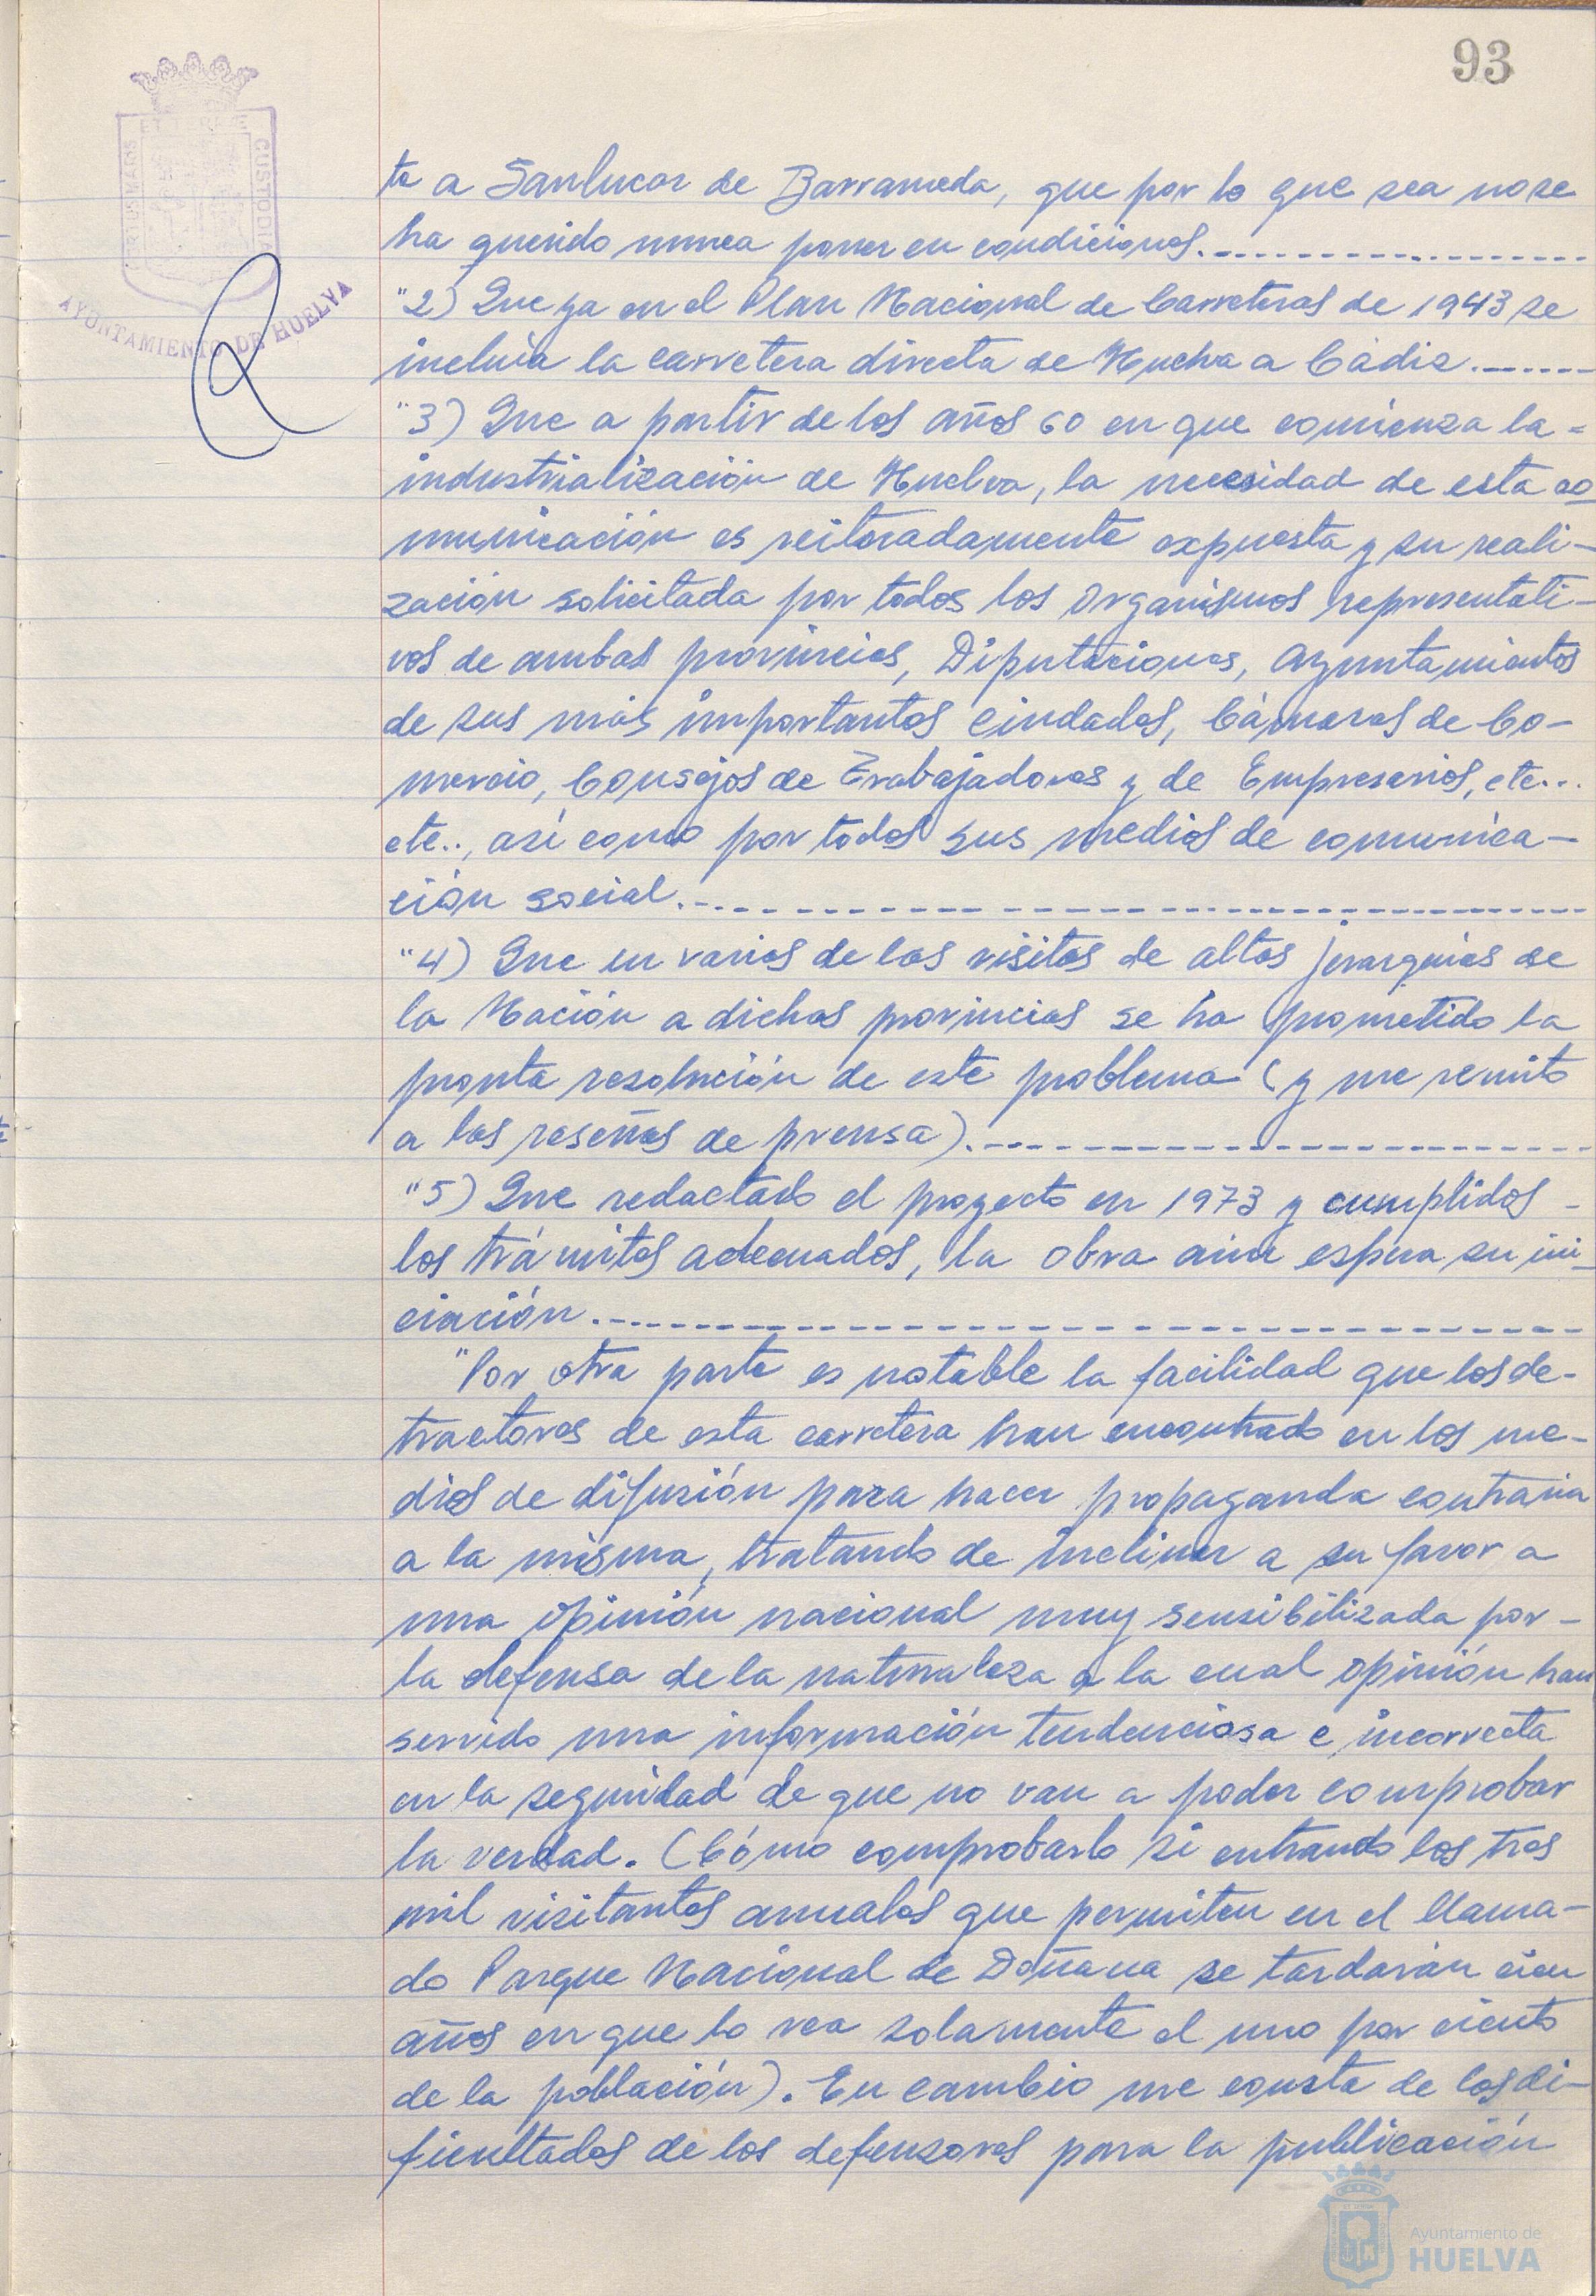 93
PORTUS MARIS ET TERRAE CUSTODIA
AYUNTAMIENTO DE HUELVA
ta a Sanlucar de Barrameda, que por lo que sea no se
ha querido nunca poner en condiciones.
"2) Que ya en el Plan Nacional de Carreteras de 1943 se
incluía la carretera directa de Huelva a Cádiz.
"3) Que a partir de los años 60 en que comienza la =
industrialización de Huelva, la necesidad de esta co
municación es reiteradamente expuesta y su reali-
zación solicitada por todos los organismos representati-
vos de ambas provincias, Diputaciones, Ayuntamientos
de sus más importantes ciudades, Cámaras de Co-
mercio, Consejos de Trabajadores y de Empresarios, etc...
etc.., así como por todos sus medios de comunica-
ción social.
"4) Que en varias de las visitas de altas jerarquías de
la Nación a dichas provincias se ha prometido la
pronta resolución de este problema (y me remito
a las reseñas de prensa).
"5) Que redactado el proyecto en 1973 y cumplidos -
los trámites adecuados, la obra aún espera su ini-
ciación.
"Por otra parte es notable la facilidad que los de-
tractores de esta carretera han encontrado en los me-
dios de difusión para hacer propaganda contraria
a la misma, tratando de inclinar a su favor a
una opinión nacional muy sensibilizada por -
la defensa de la naturaleza a la cual opinión han
servido una información tendenciosa e incorrecta
en la seguridad de que no van a poder comprobar
la verdad. (Cómo comprobarlo si entrando los tres
mil visitantes anuales que permiten en el llama-
do Parque Nacional de Doñana se tardarán cien
años en que lo vea solamente el uno por ciento
de la población). En cambio me consta de las di-
ficultades de los defensores para la publicación
Ayuntamiento de
HUELVA